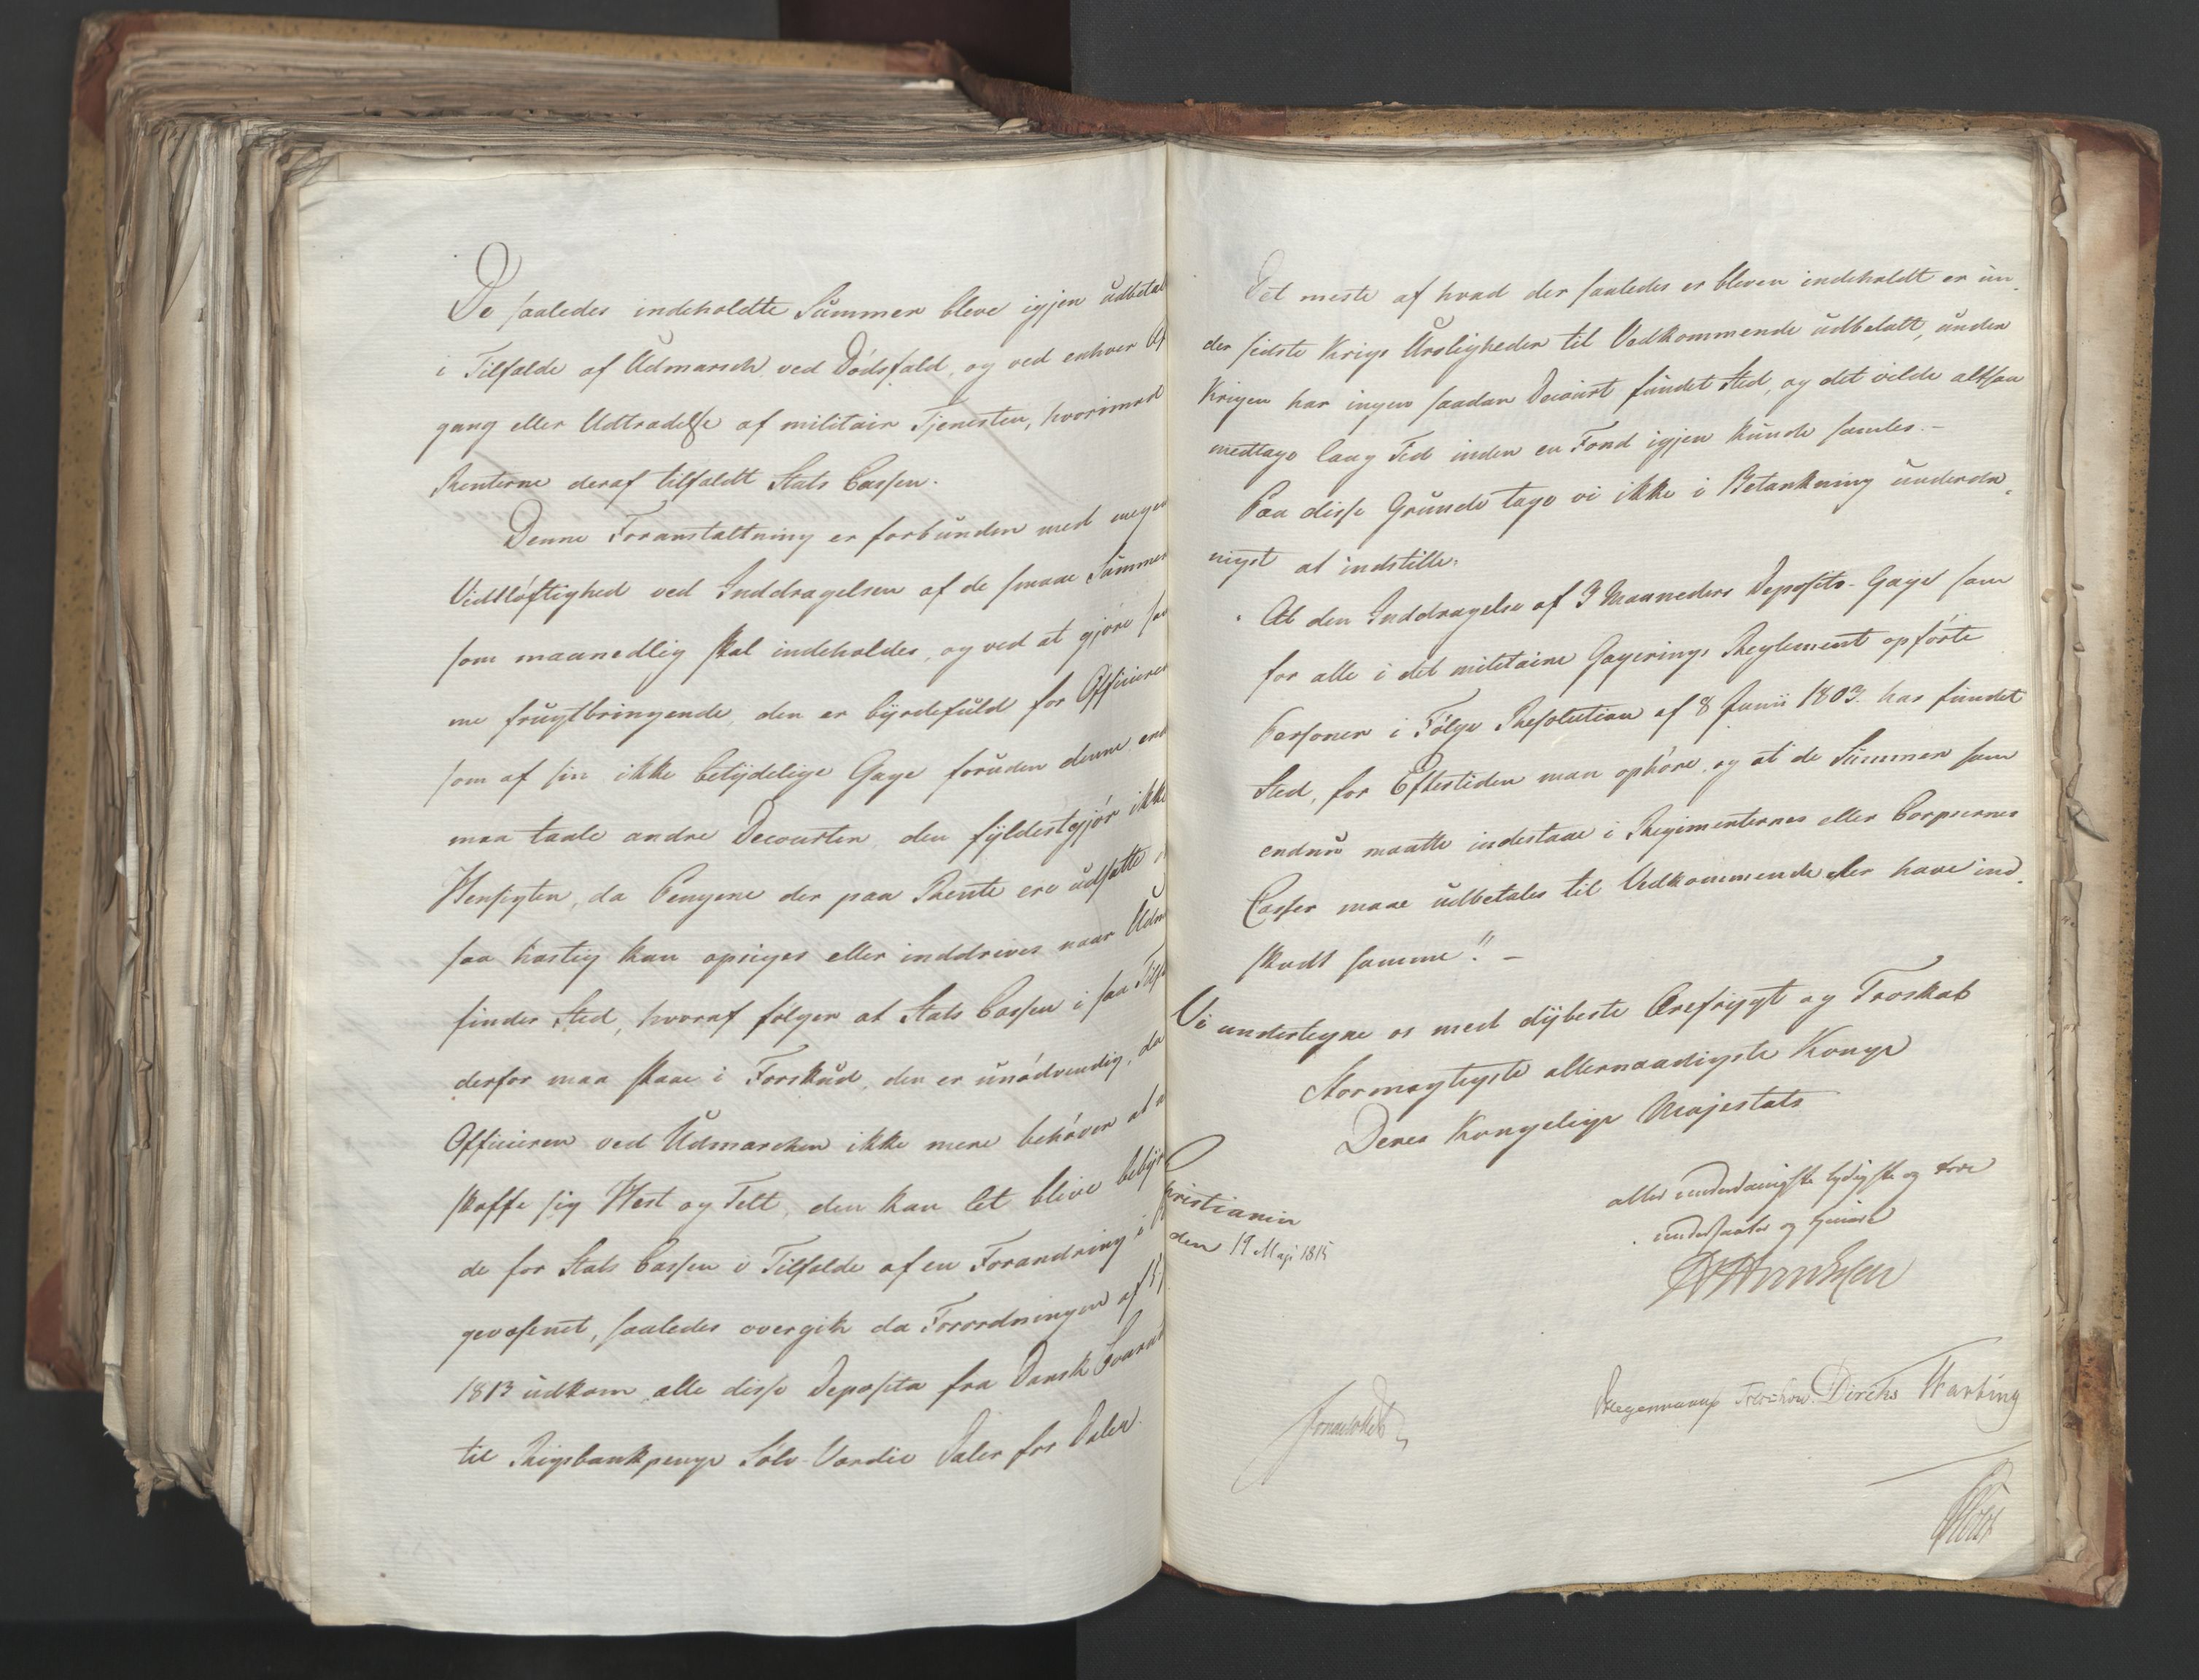 De saaledes indeholdte Summer bleve igjen udbetal
i Tilfælde af Udmarsch, ved Dödsfald, og ved enhver Af
gang eller Udtrædelse af militair Tjenesten, hvorimod
Renterne deraf tilfaldt Stats Cassen.
Denne Foranstaltning er forbunden med megen
Vidtløftighed ved Inddragelsen af de smaae Summer
som maanedlig skal indeholdes, og ved at gjöre sam
me frugtbringende, den er byrdefuld for Officieren
som af sin ikke betydelige Gage foruden denne end
maa taale andre Decourter, den fyldestgjör ikke
Hensigten, da Pengene der paa Rente ere udsatte
saa hastig kan opsiges eller inddrives naar Udm
finder Sted, hvoraf fölger at Stats Cassen i saa Tilf
derfor maa staae i Forskud, den er unödvendig, da
Officieren ved Udmarchen ikke mere behöver at a
skaffe sig Hest og Telt, den kan let blive bebyr
de for Stats Cassen i Tilfælde af en Forandring i
gevæsenet, saaledes overgik da Forordningen af 5
1813 udkom, alle disse Deposita fra Dansk Courant
til Rigsbankpenge Sölv-Værdie Daler for Daler.
Det meste af hvad der saaledes er bleven indeholdt er un-
der sidste Krigs Uroligheder til Vedkommende udbetalt, under
Krigen har ingen saadan Decourt fundet Sted, og det vilde altsaa
medtage lang Tid inden en Fond igjen kunde samles. -
Paa disse Grunde tage vi ikke i Betænkning underda-
nigst at indstille,
At den Inddragelse af 3 Maaneders Deposito-Gage som
for alle i det militaire Gagerings Reglement opförte
Personer i Fölge Resolution af 8 Junii 1803. har fundet
Sted, for Eftertiden maa ophöre, og at de Summer som
endnu maatte indestaae i Regimenternes eller Corpsernes
Casser maae udbetales til Vedkommende der have ind-
skudt samme." -
Vi undertegne os med dybeste Ærefrygt og Troskab
Stormægtigste allernaadigste Konge
Deres Kongelige Majestæts
aller underdanigste lydigste og troe
undersaatter og tjenere
Christiania
den 19 Maji 1815
Treschow Diriks Hartung